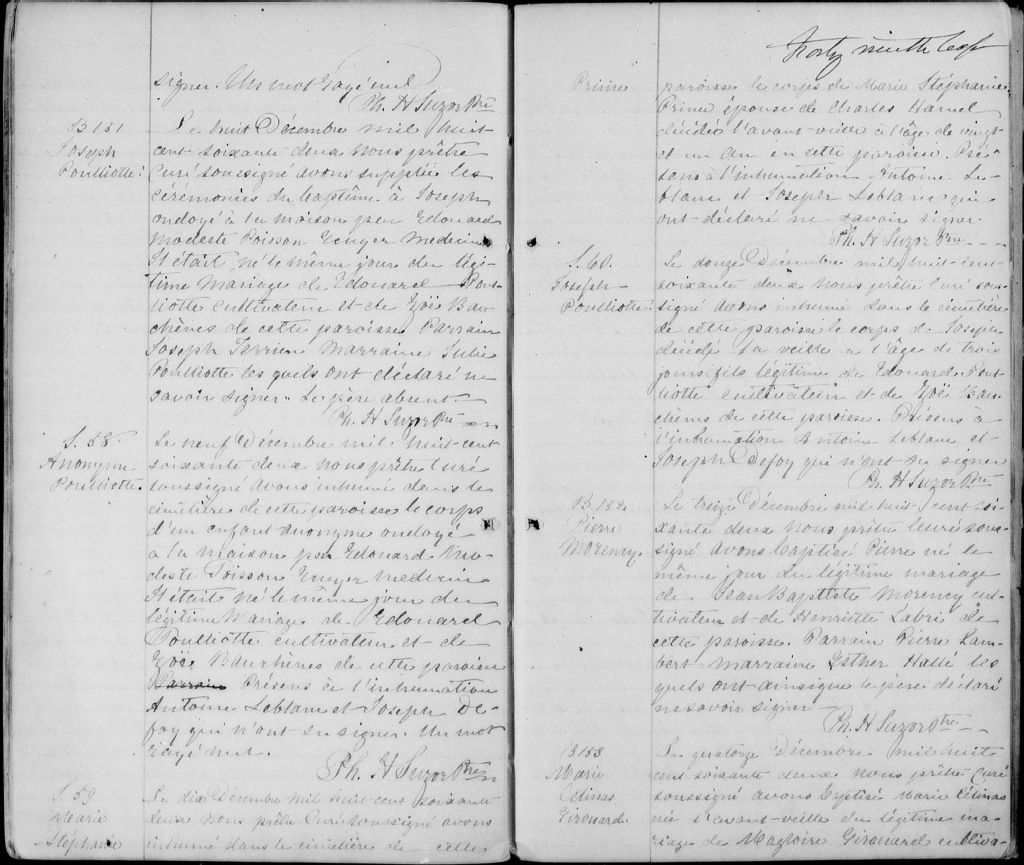 signer. Un mot rayé nul
Ph. H Suzor Ptre
B 151
Joseph
Poulliotte.
Le huit Décembre mil huit
cent soixante deux nous prêtre
Curé soussigné avons supplée les
cérémonies du baptême à Joseph
ondoyé à la maison par Edouard
Modeste Poisson Ecuyer Medecin
Il était né le même jour du légi-
time Mariage de Edouard Poul-
liotte cultivateur et de Zoë Bau-
chênes de cette paroisse Parrain
Joseph Terrien Marraine Julie
Poulliotte les quels ont déclaré ne
savoir signer. Le père absent.
Ph. H Suzor Ptre
S. 58
Anonyme
Poulliotte.
Le neuf Décembre mil huit cent
soixante deux nous prêtre Curé
soussigné avons inhumé dans le
cimetière de cette paroisse le corps
d'un enfant anonyme ondoyé
à la maison par Edouard Mo-
deste Poisson Ecuyer Medecin
Il était né le même jour du
légitime Mariage de Edouard
Poulliotte cultivateur et de
Zoë Bauchênes de cette paroisse
Parrain Présens à l'inhumation
Antoine Leblanc et Joseph De-
foy qui n'ont su signer. Un mot
rayé nul.
Ph. H Suzor Ptre
S. 59
Marie
Stéphanie
Le dix Décembre mil huit cent soixante
deux nous prêtre Curé soussigné avons
inhumé dans le cimetière de cette
Forty ninth leaf
Prime
paroisse le corps de Marie Stéphanie
Prime épouse de Charles Hamel
décédée l'avant-veille à l'âge de vingt
et un an en cette paroisse. Pré-
sens à l'inhumation Antoine Le-
blanc et Joseph Leblanc qui
ont déclaré ne savoir signer.
Ph. H Suzor Ptre
S. 60.
Joseph
Poulliotte.
Le douze Décembre mil huit cent
soixante deux nous prêtre Curé sous-
signé avons inhumé dans le cimetière
de cette paroisse le corps de Joseph
décédé la veille à l'âge de trois
jours fils légitime de Edouard Poul-
liotte cultivateur et de Zoë Bau-
chênes de cette paroisse. Présens à
l'inhumation Antoine Leblanc et
Joseph Defoy qui n'ont su signer
Ph. H Suzor Ptre
B 152
Pierre
Morency.
Le treize Décembre mil huit cent soi-
xante deux nous prêtre Curé sous-
signé avons baptisé Pierre né le
même jour du légitime mariage
de Jean Baptiste Morency cul-
tivateur et de Henriette Labrie de
cette paroisse. Parrain Pierre Lam-
bert marraine Esther Hallé les
quels ont ainsi que le père déclaré
ne savoir signer
Ph. H Suzor Ptre
B 153
Marie
Célinas
Girouard.
Le quatorze Décembre mil huit
cent soixante deux nous prêtre Curé
soussigné avons baptisé Marie Célinas
née l'avant-veille du légitime ma-
riage de Magloire Girouard cultiva-